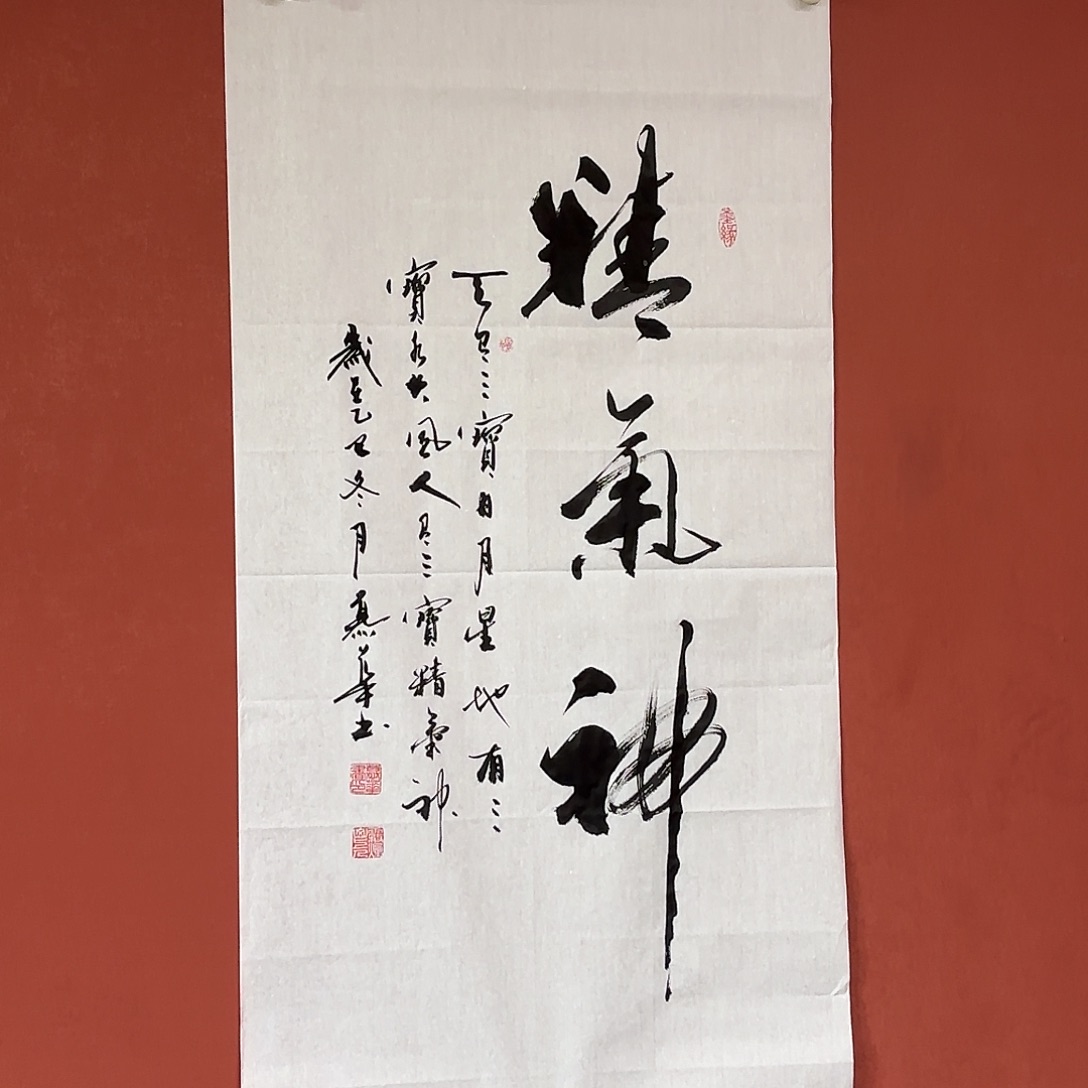 精氣神
天有三寶日月星地有三
寶水火風人有三寶精氣神
歲在乙巳冬月熹華书